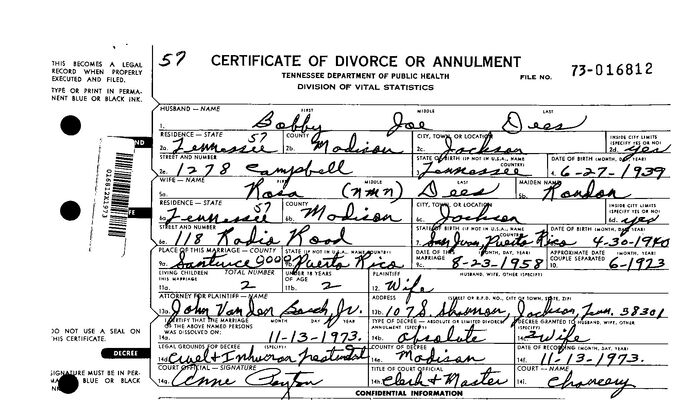 57 CERTIFICATE OF DIVORCE OR ANNULMENT
TENNESSEE DEPARTMENT OF PUBLIC HEALTH
DIVISION OF VITAL STATISTICS
FILE NO. 73-016812
THIS BECOMES A LEGAL
RECORD WHEN PROPERLY
EXECUTED AND FILED.
TYPE OR PRINT IN PERMA-
NENT BLUE OR BLACK INK.
HUSBAND — NAME FIRST MIDDLE LAST
1. Bobby Joe Dees
RESIDENCE — STATE 57 COUNTY CITY, TOWN, OR LOCATION INSIDE CITY LIMITS (SPECIFY YES OR NO)
2a. Tennessee 2b. Madison 2c. Jackson 2d. yes
STREET AND NUMBER STATE OF BIRTH (IF NOT IN U.S.A., NAME COUNTRY) DATE OF BIRTH (MONTH, DAY, YEAR)
2e. 1278 Campbell 3. Tennessee 4. 6-27-1939
WIFE — NAME FIRST MIDDLE LAST MAIDEN NAME
5a. Rosa (nmn) Dees 5b.
RESIDENCE — STATE 57 COUNTY CITY, TOWN, OR LOCATION INSIDE CITY LIMITS (SPECIFY YES OR NO)
6a. Tennessee 6b. Madison 6c. Jackson 6d. yes
STREET AND NUMBER STATE OF BIRTH (IF NOT IN U.S.A., NAME COUNTRY) DATE OF BIRTH (MONTH, DAY, YEAR)
6e. 118 Radio Road 7. San Juan, Puerto Rico 4-30-1940
PLACE OF THIS MARRIAGE — COUNTY STATE (IF NOT IN U.S.A., NAME COUNTRY) DATE OF THIS MARRIAGE (MONTH, DAY, YEAR) APPROXIMATE DATE COUPLE SEPARATED
9a. Santurce 9b. Puerto Rico 9c. 8-23-1958 10. 6-1973
LIVING CHILDREN THIS MARRIAGE TOTAL NUMBER UNDER 18 YEARS OF AGE PLAINTIFF HUSBAND, WIFE, OTHER (SPECIFY)
11a. 2 11b. 2 12. Wife
ATTORNEY FOR PLAINTIFF — NAME ADDRESS (STREET OR R.F.D. NO., CITY OR TOWN, STATE, ZIP)
13a. John Van den Bosch, Jr. 13b. 1078 Shannon, Jackson, Tenn. 38301
I CERTIFY THAT THE MARRIAGE OF THE ABOVE NAMED PERSONS WAS DISSOLVED ON: MONTH DAY YEAR TYPE OF DECREE — ABSOLUTE OR LIMITED DIVORCE, ANNULMENT (SPECIFY) DECREE GRANTED TO HUSBAND, WIFE, OTHER (SPECIFY)
11-13-1973. absolute Wife
LEGAL GROUNDS FOR DECREE (SPECIFY) COUNTY OF DECREE DATE OF RECORDING (MONTH, DAY, YEAR)
14d. Cruel & Inhuman Treatment 14e. Madison 14f. 11-13-1973.
COURT OFFICIAL — SIGNATURE TITLE OF COURT OFFICIAL COURT — NAME
14g. Anne 14h. Clerk & Master 14i. Chancery
CONFIDENTIAL INFORMATION
DO NOT USE A SEAL ON
THIS CERTIFICATE.
DECREE
SIGNATURE MUST BE IN PER-
BLUE OR BLACK
016812X1973